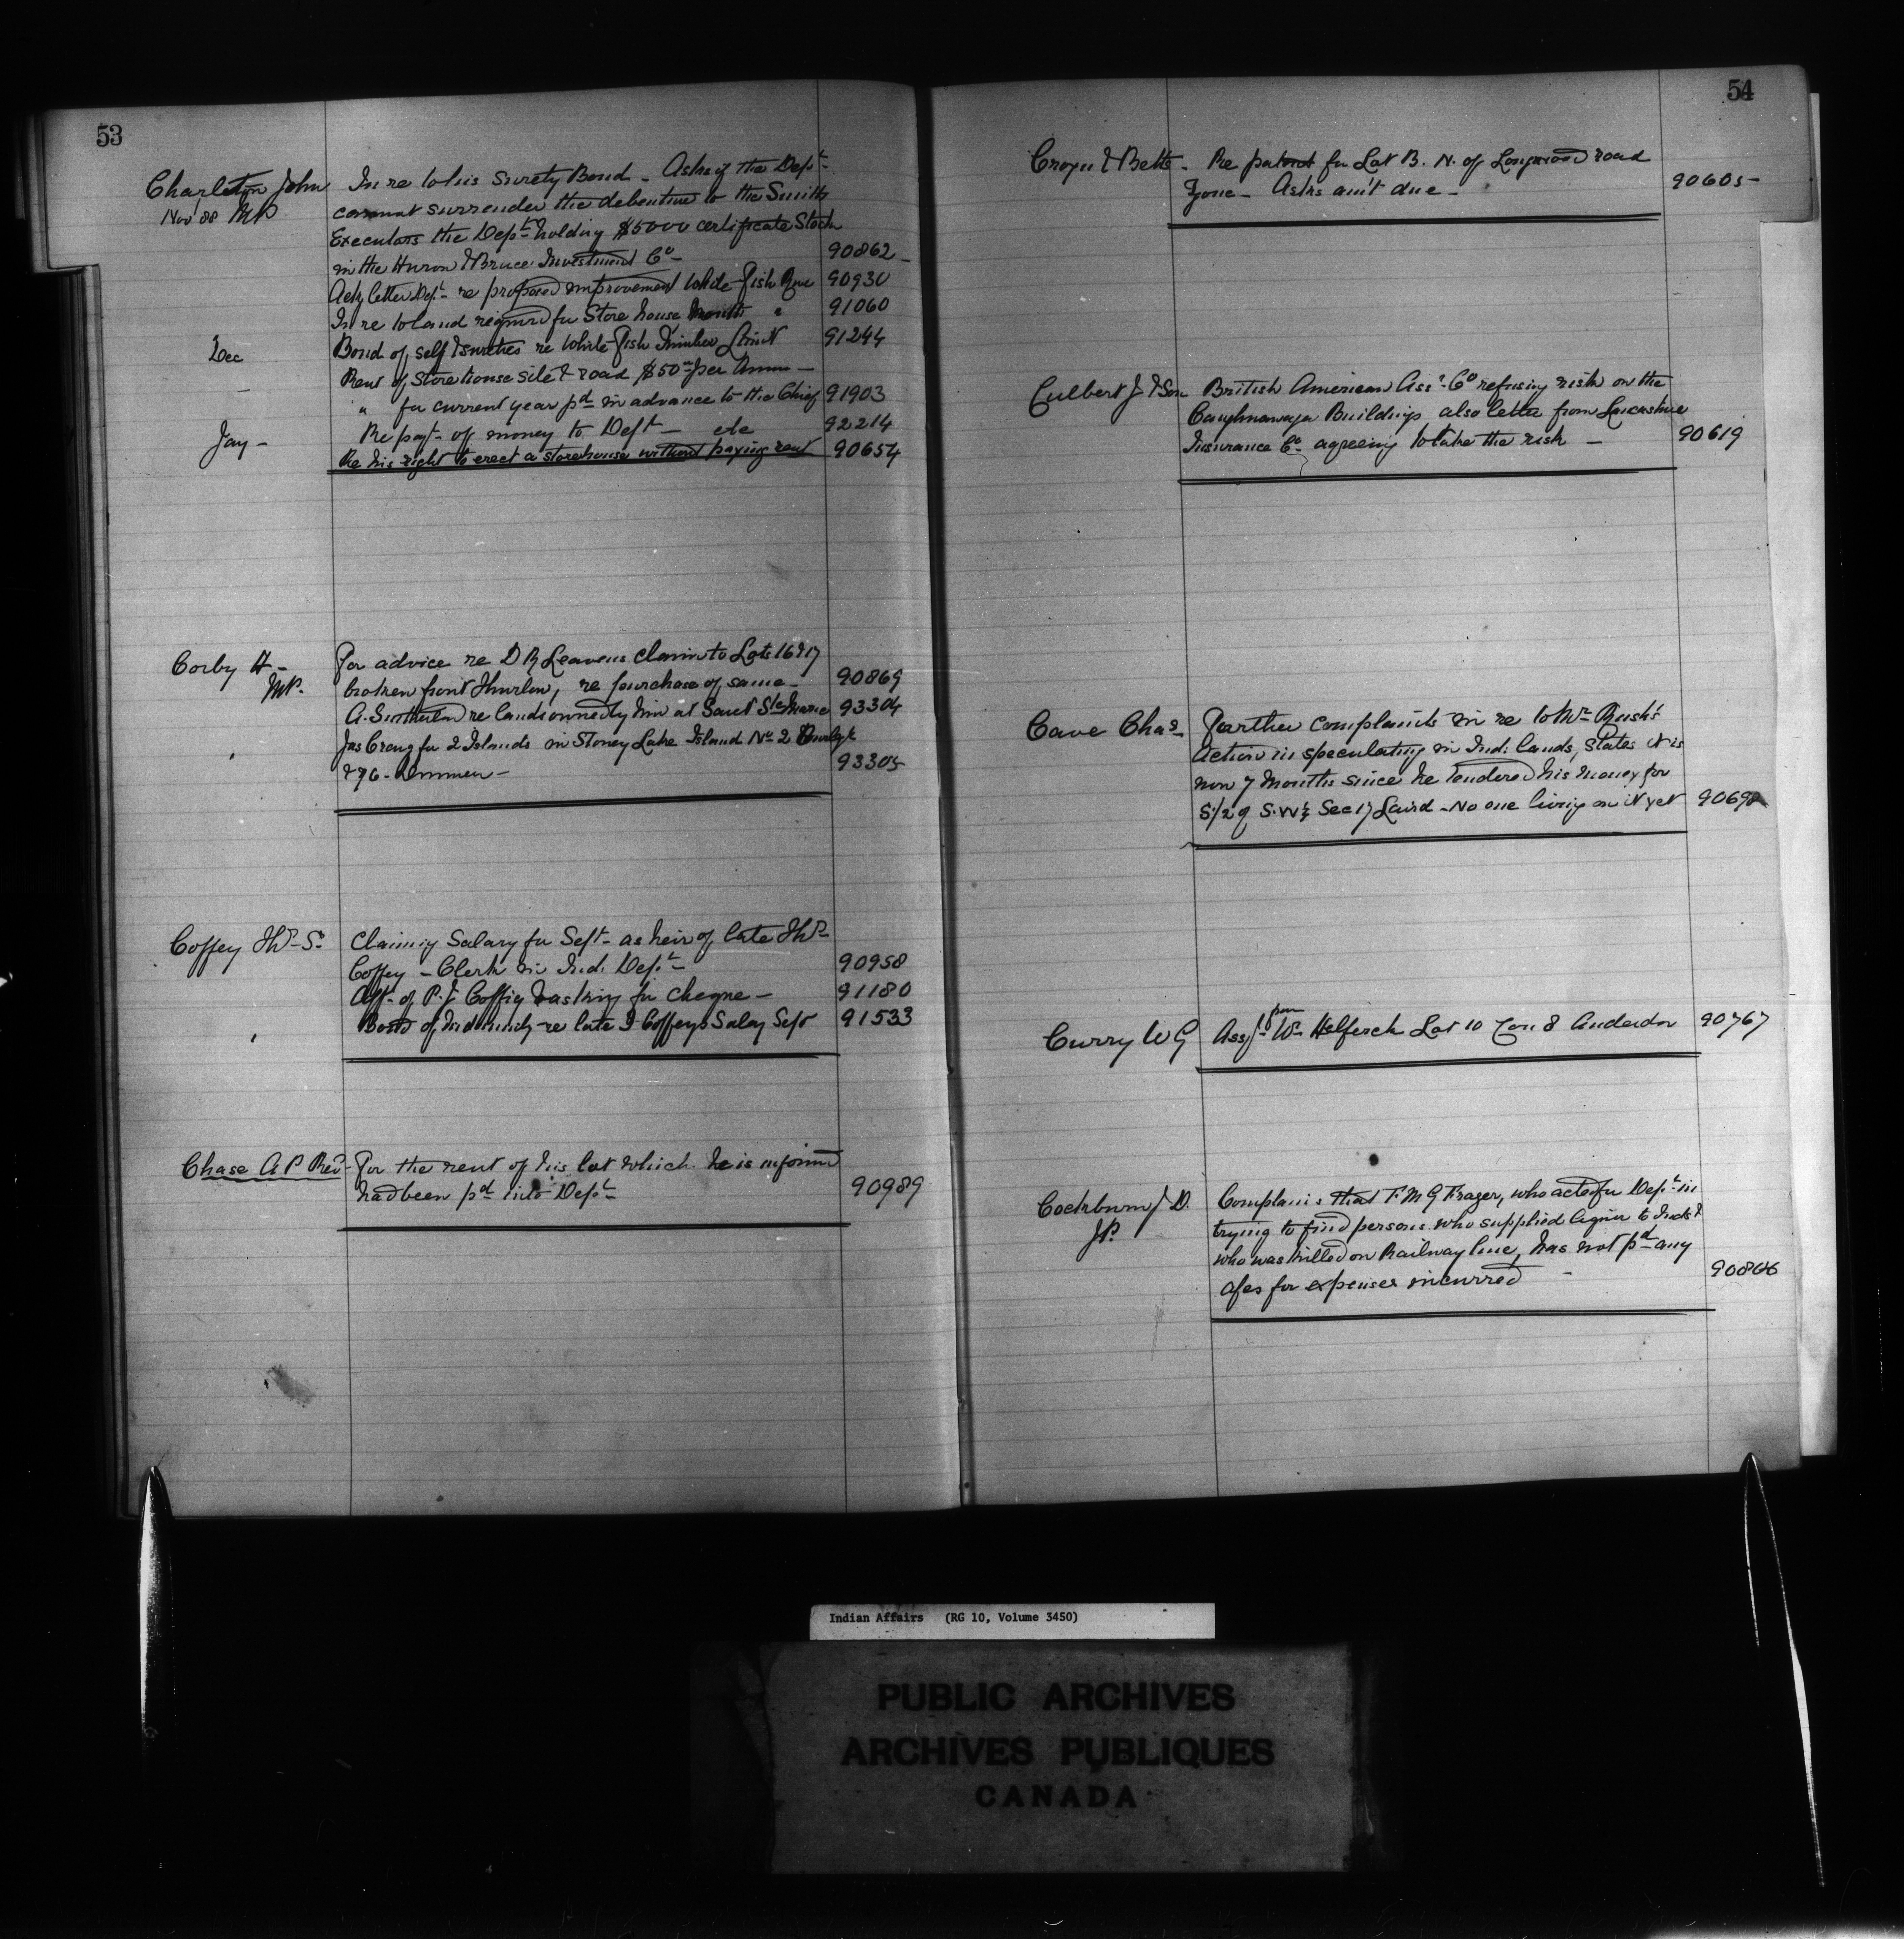 53
Charleton John In re to his Surety Bond - Asks if the Dept
Nov 88 MP cannot surrender the debenture to the Smith
Executors the Dept holding $5000 certificate Stock
in the Huron & Bruce Investment Co - 90862
Ackg letter Dept re proposed improvement White Fish River 90930
In re to land required for Store house Mouth " 91060
Dec Bond of self & sureties re White Fish Timber Limit 91244
Rent of Storehouse site & road $50 per Annum -
" for current year pd in advance to the Chief 91903
Jay - Re payt of money to Dept - etc 92214
Re his right to erect a storehouse without paying rent 90654
Corby H - For advice re D R Leavens claim to Lots 16 & 17
MP. broken front Thurlow, re purchase of same - 90869
A. Sutherland re lands owned by him at Sault Ste Marie 93304
Jas Craig for 2 Islands in Stoney Lake Island No 2 Burleigh
& 76 - Dummer - 93305
Coffey Thos Sr Claiming Salary for Sept - as heir of late Thos
Coffey - Clerk in Ind. Dept 90958
Afft of P. J. Coffey & asking for cheque - 91180
Bond of Indemnity re late T Coffeys Salary Sept 91533
Chase A P Revd - For the rent of his lot which he is informed
had been pd into Dept 90989
54
Cronyn & Betts - Re patent for Lot B. N. of Longwood road
Zone - Asks am't due - 90605
Culbert J & Son British American Assce Co refusing risk on the
Caughnawaga Buildings also letter from Lancashire
Insurance Co agreeing to take the risk - 90619
Cave Chas Further complaints in re to Mr Rush's
Action in speculating in Ind. lands, States it is
now 7 months since he tendered his money for
S. 1/2 of S. W 1/4 Sec 17 Laird - No one living on it yet 90698
Curry W G Assgt from Wm Helferch Lot 10 Con 8 Anderdon 90767
Cockburn J D. Complains that F. M G Frazer, who acted for Dept in
J.P. trying to find persons who supplied liquor to Inds &
who was killed on Railway line, has not pd any
a/cs for expenses incurred - 90866
Indian Affairs (RG 10, Volume 3450)
PUBLIC ARCHIVES
ARCHIVES PUBLIQUES
CANADA